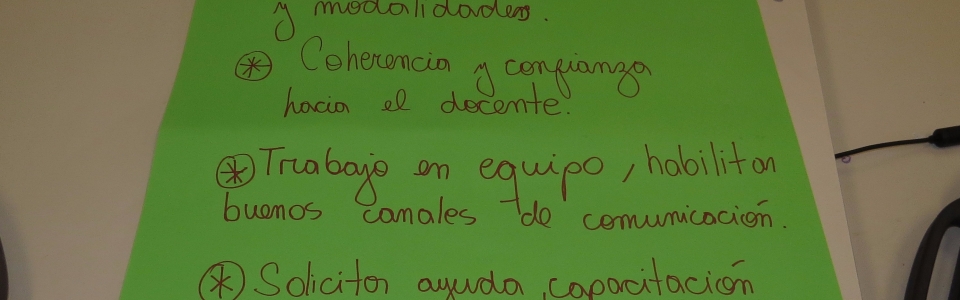 y modalidades.
⊛ Coherencia y confianza
hacia el docente.
⊛ Trabajo en equipo, habilitar
buenos canales de comunicación.
⊛ Solicitar ayuda, capacitación